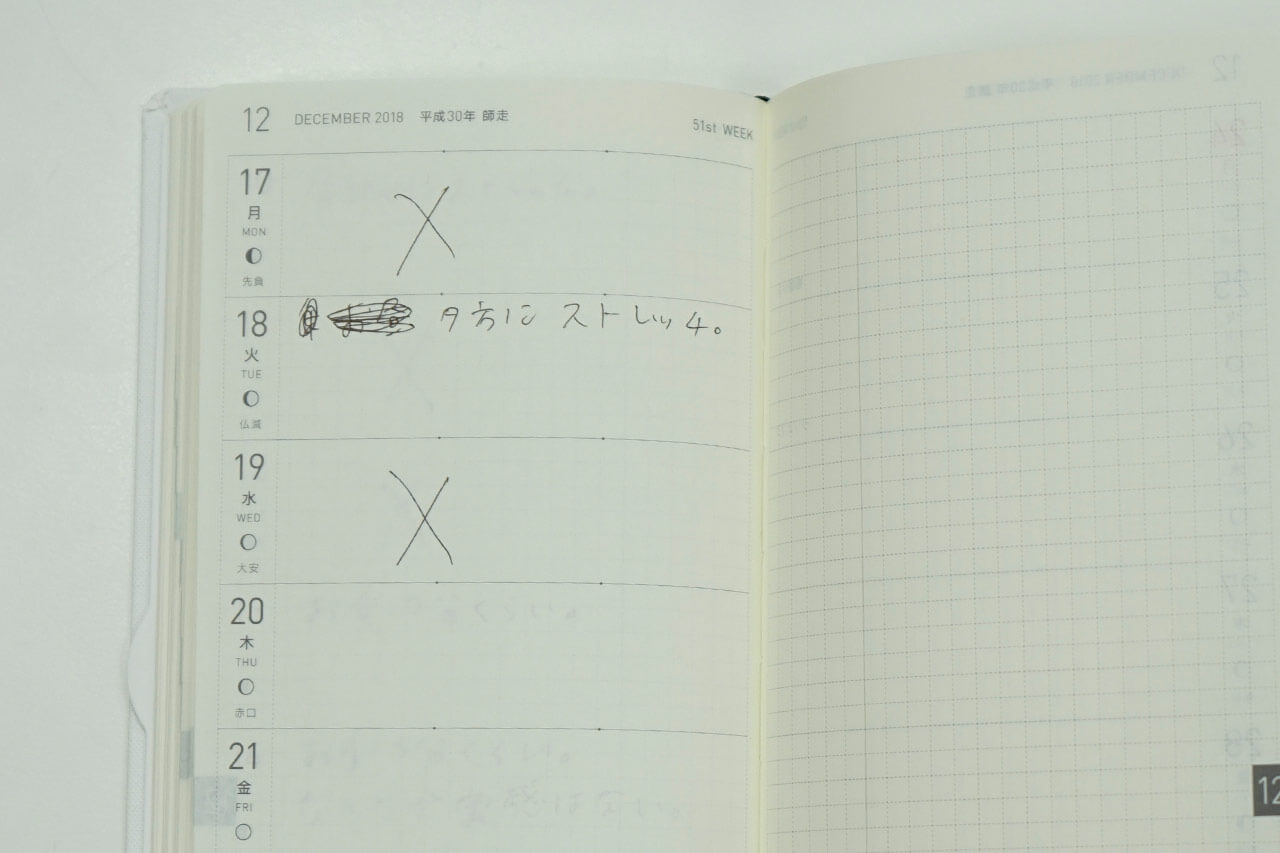 12 DECEMBER 2018 平成30年 師走 51st WEEK
17
月
MON
先負
X
18 夕方に ストレッチ。
火
TUE
仏滅
19
水
WED
大安
X
20
木
THU
赤口
21
金
FRI
12